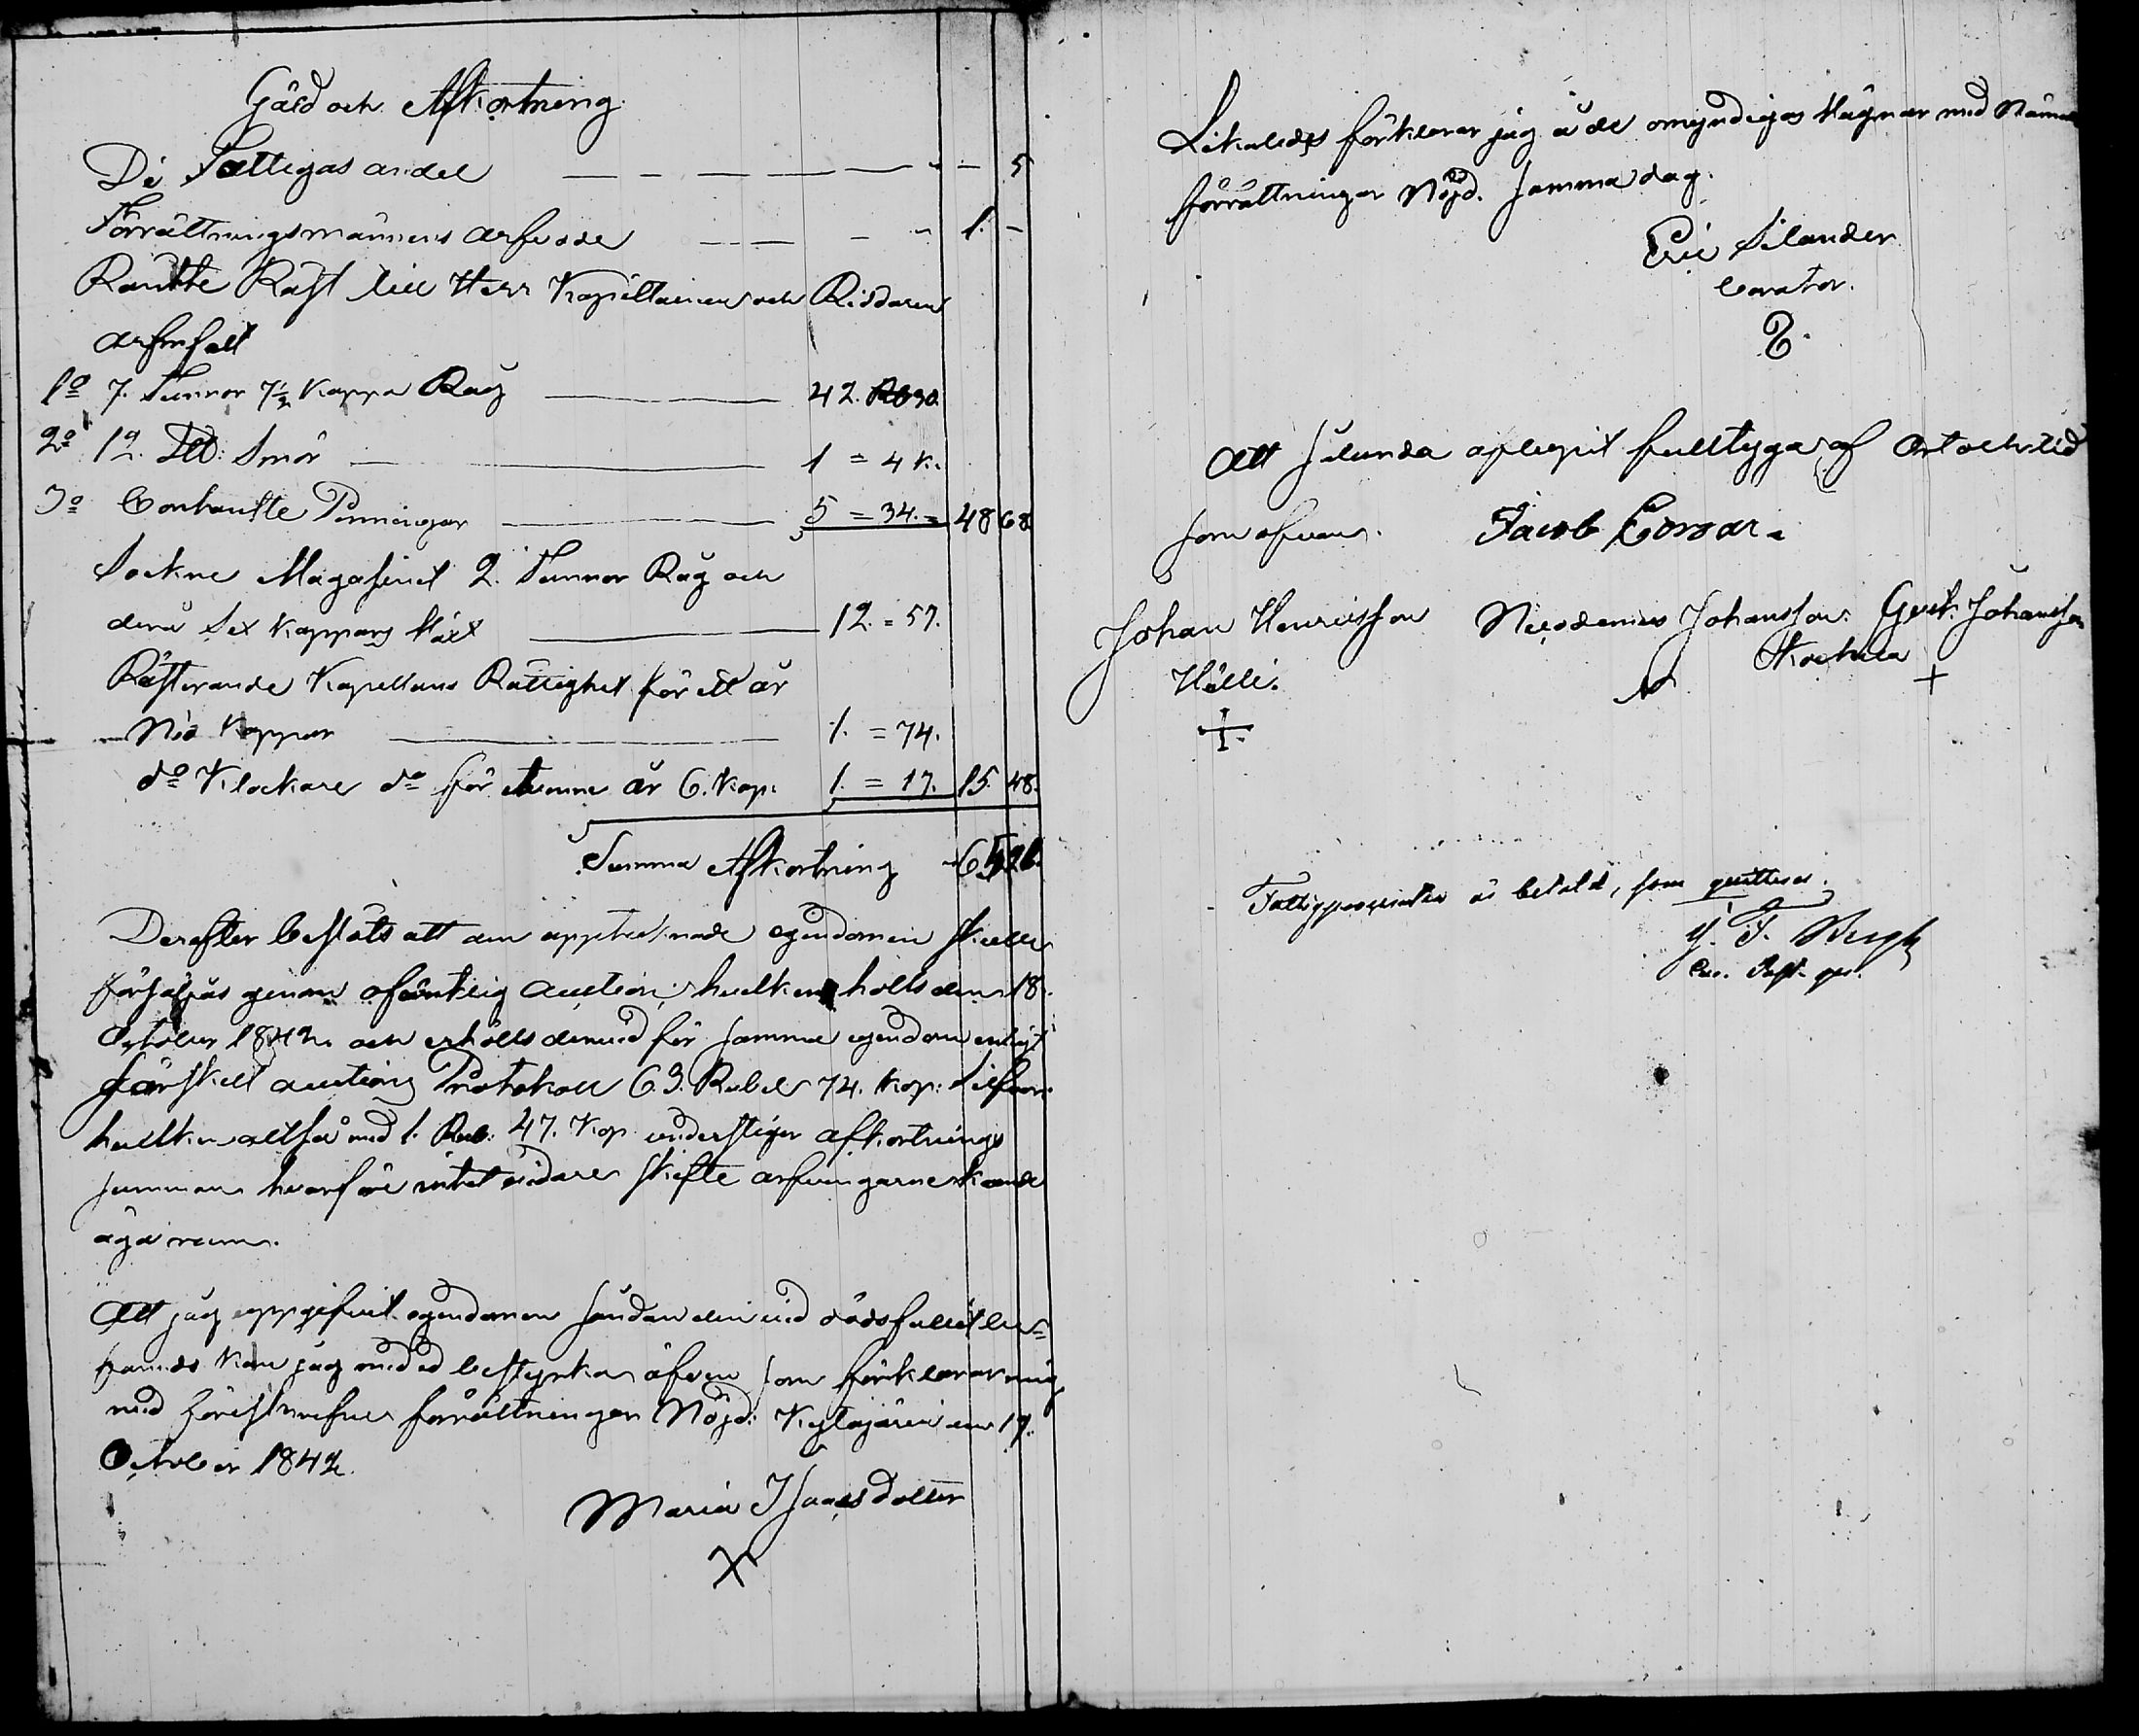 Gäld och Afkortning
De Fattigas andel — — — — — — — 5
Förrättningsmännens arfvode — — — — 1. —
Rantte Räst till Herr Kapiteinen och Riddaren
Arfenfelt
1o 7. Tunnor 7½ Kappa Råg — 42. Rb 30.
2o 12. ℔: Smör — 1 = 4 k.
3o Contante Penningar — 5 = 34. = 48 68
Sockne Magasinet 2. Tunnor Råg och
derå Sex Kappars Växt — 12. = 57.
Resterande Kapellans Rättighet för ett år
Nio Kappar — 1. = 74.
do Klockare do för samma år 6. Kap. 1. = 17. 15. 48.
Summa Afkortning 65 21.
Derefter beslöts att den upptecknade egendomen skulle
försäljas genom offentelig auction, hvilken hölls den 18.
October 1842. och erhölls dervid för samma egendom enligt
särskilt auctions Protokoll 63. Rubel 74. Kop: Silfver
hvilken altså med 1. Rub: 47. Kop understiger afkortnings
summan hvarföre intet vidare skifte arfvingarne kunde
äga rum.
Att jag uppgifvit egendomen sådan den vid dödsfallet be=
fanns kan jag med ed bestyrka äfven som förklarar mig
med förestående förrättningar Nöjd. Kylajärvi den 17.
October 1842.
Maria Isaacs Dotter
X
Likaledes förklarar jag å de omyndigas vägnar med
förrättningar Nöjd. Samma dag.
Eric Silander
Curator.
Att sålunda aflupit fulltyga, af Ort och tid
som ofvan. Jacob
Johan Henricsson Nicodemus Johansson Gust. Johansson
Hälli. +
+
Fattigprocenten är betald, som quitteras.
J. F. Bergh